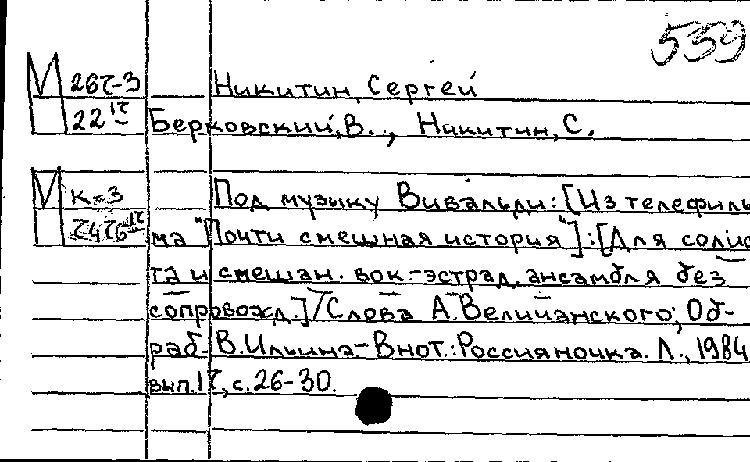 559
М 26г-3 Никитин, Сергей
22 Берковский, В., Никитин, С.
М К-3 Под музыку Вивальди: [Из телефиль
ма "Почти смешная история"]:[Для солис
та и смешан. вок-эстрад. ансамбля без
сопровожд.]/Слова А. Величанского; Об-
раб. В. Ильина-В нот.: Россияночка. Л., 1984
вып. 12, с. 26-30.